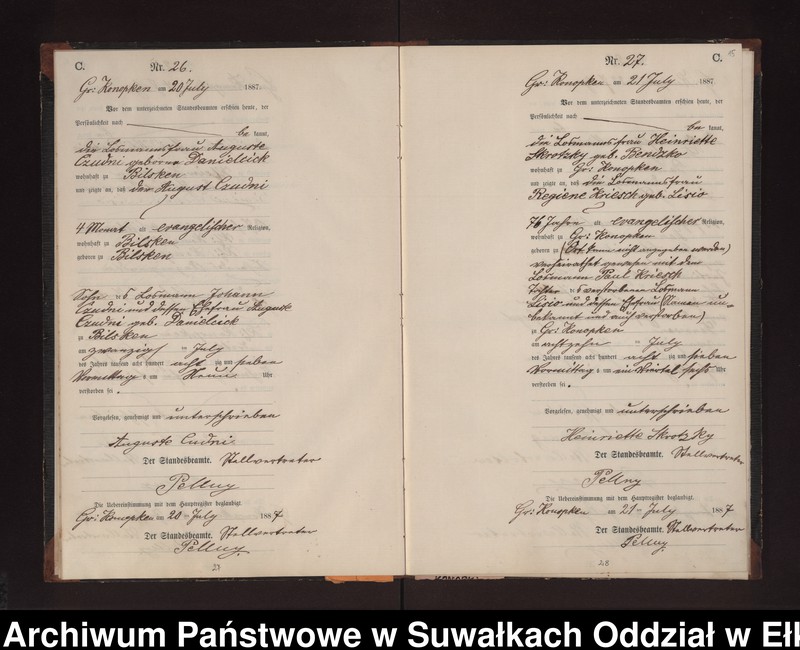 C.
Nr. 26.
Gr: Konopken am 20 July 1887.
Vor dem unterzeichneten Standesbeamten erschien heute, der
Persönlichkeit nach
be kannt,
die Losmannsfrau Auguste
Czudni geborne Danielcick
wohnhaft zu Bilsken
und zeigte an, daß der August Czudni
4 Monat alt evangelischer Religion,
wohnhaft zu Bilsken
geboren zu Bilsken
Sohn des Losmann Johann
Czudni und dessen Ehefrau Auguste
Czudni geb. Danielcick
zu Bilsken
am zwanzigst ten July
des Jahres tausend acht hundert acht zig und sieben
Vormittag s um Neun Uhr
verstorben sei.
Vorgelesen, genehmigt und unterschrieben
Auguste Cudni
Der Standesbeamte. Stellvertreter
Pellny
Die Uebereinstimmung mit dem Hauptregister beglaubigt.
Gr: Konopken am 20 ten July 1887
Der Standesbeamte. Stellvertreter
Pellny
27
C.
Nr. 27.
Gr: Konopken am 21 July 1887
Vor dem unterzeichneten Standesbeamten erschien heute, der
Persönlichkeit nach
be kannt,
die Losmannsfrau Heinriette
Skrotzky geb. Bendzko
wohnhaft zu Gr: Konopken
und zeigte an, daß die Losmannsfrau
Regiene Kriesch geb. Lisio
76 Jahre alt evangelischer Religion,
wohnhaft zu Gr: Konopken
geboren zu (Ort kann nicht angegeben werden)
verheirathet gewesen mit dem
Losmann Paul Kriesch
Tochter des verstorbenen Losmann
Lisio und dessen Ehefrau (Namen un-
bekannt und auch verstorben)
zu Gr: Konopken
am achtzehn ten July
des Jahres tausend acht hundert acht zig und sieben
Vormittag s um ein Viertel sechs Uhr
verstorben sei.
Vorgelesen, genehmigt und unterschrieben
Heinriette Skrotzky
Der Standesbeamte. Stellvertreter
Pellny
Die Uebereinstimmung mit dem Hauptregister beglaubigt.
Gr: Konopken am 21 ten July 1887
Der Standesbeamte. Stellvertreter
Pellny
28
Archiwum Państwowe w Suwałkach Oddział w Ełk